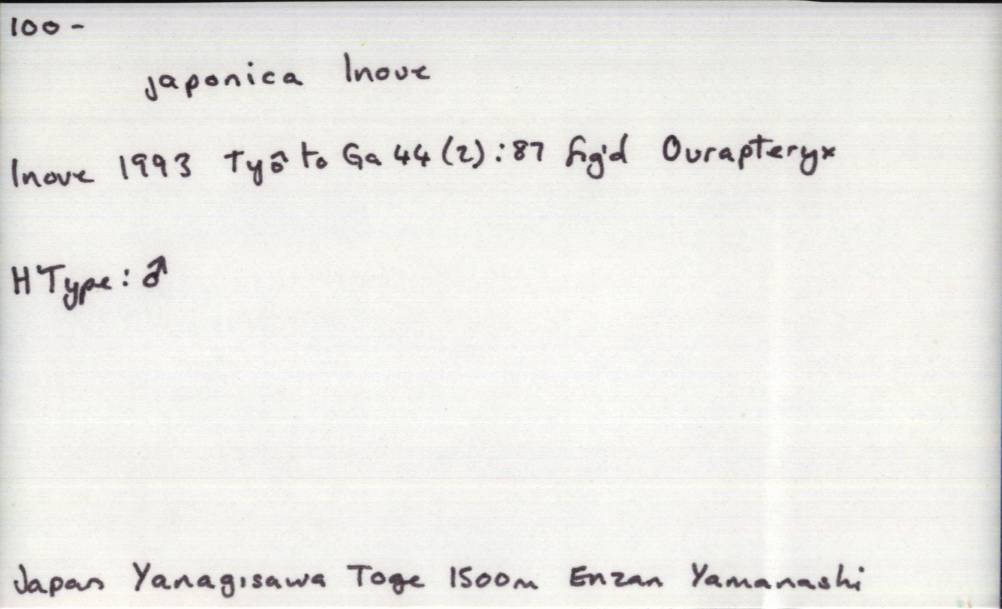 100 -
japonica Inoue
Inoue 1993 Tyô to Ga 44 (2) : 87 fig'd Ourapteryx
H Type : ♂
Japan Yanagisawa Toge 1500m Enzan Yamanashi